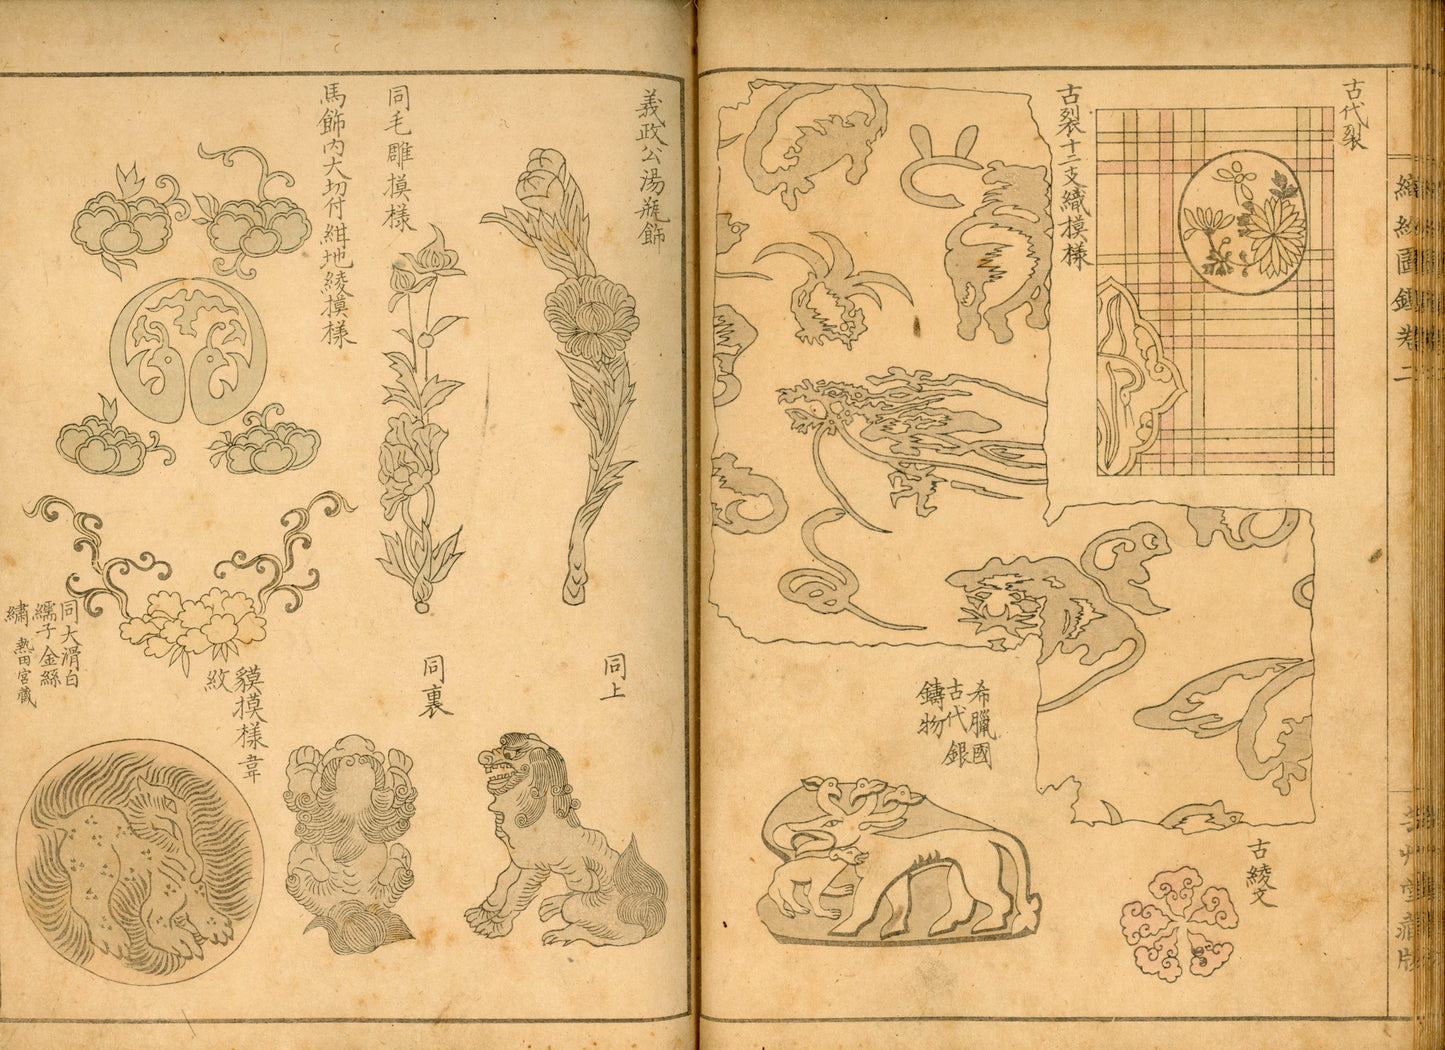 古代裂
古裂十二支織模様
希臘國
古代銀
鑄物
古綾文
義政公湯瓶飾
同上
同毛雕摸様
同裏
馬飾内大切付紺地綾摸様
貘摸様韋
紋
同大滑白
繻子金絲
繡熱田宮藏
圖
卷二
芸艸堂藏版